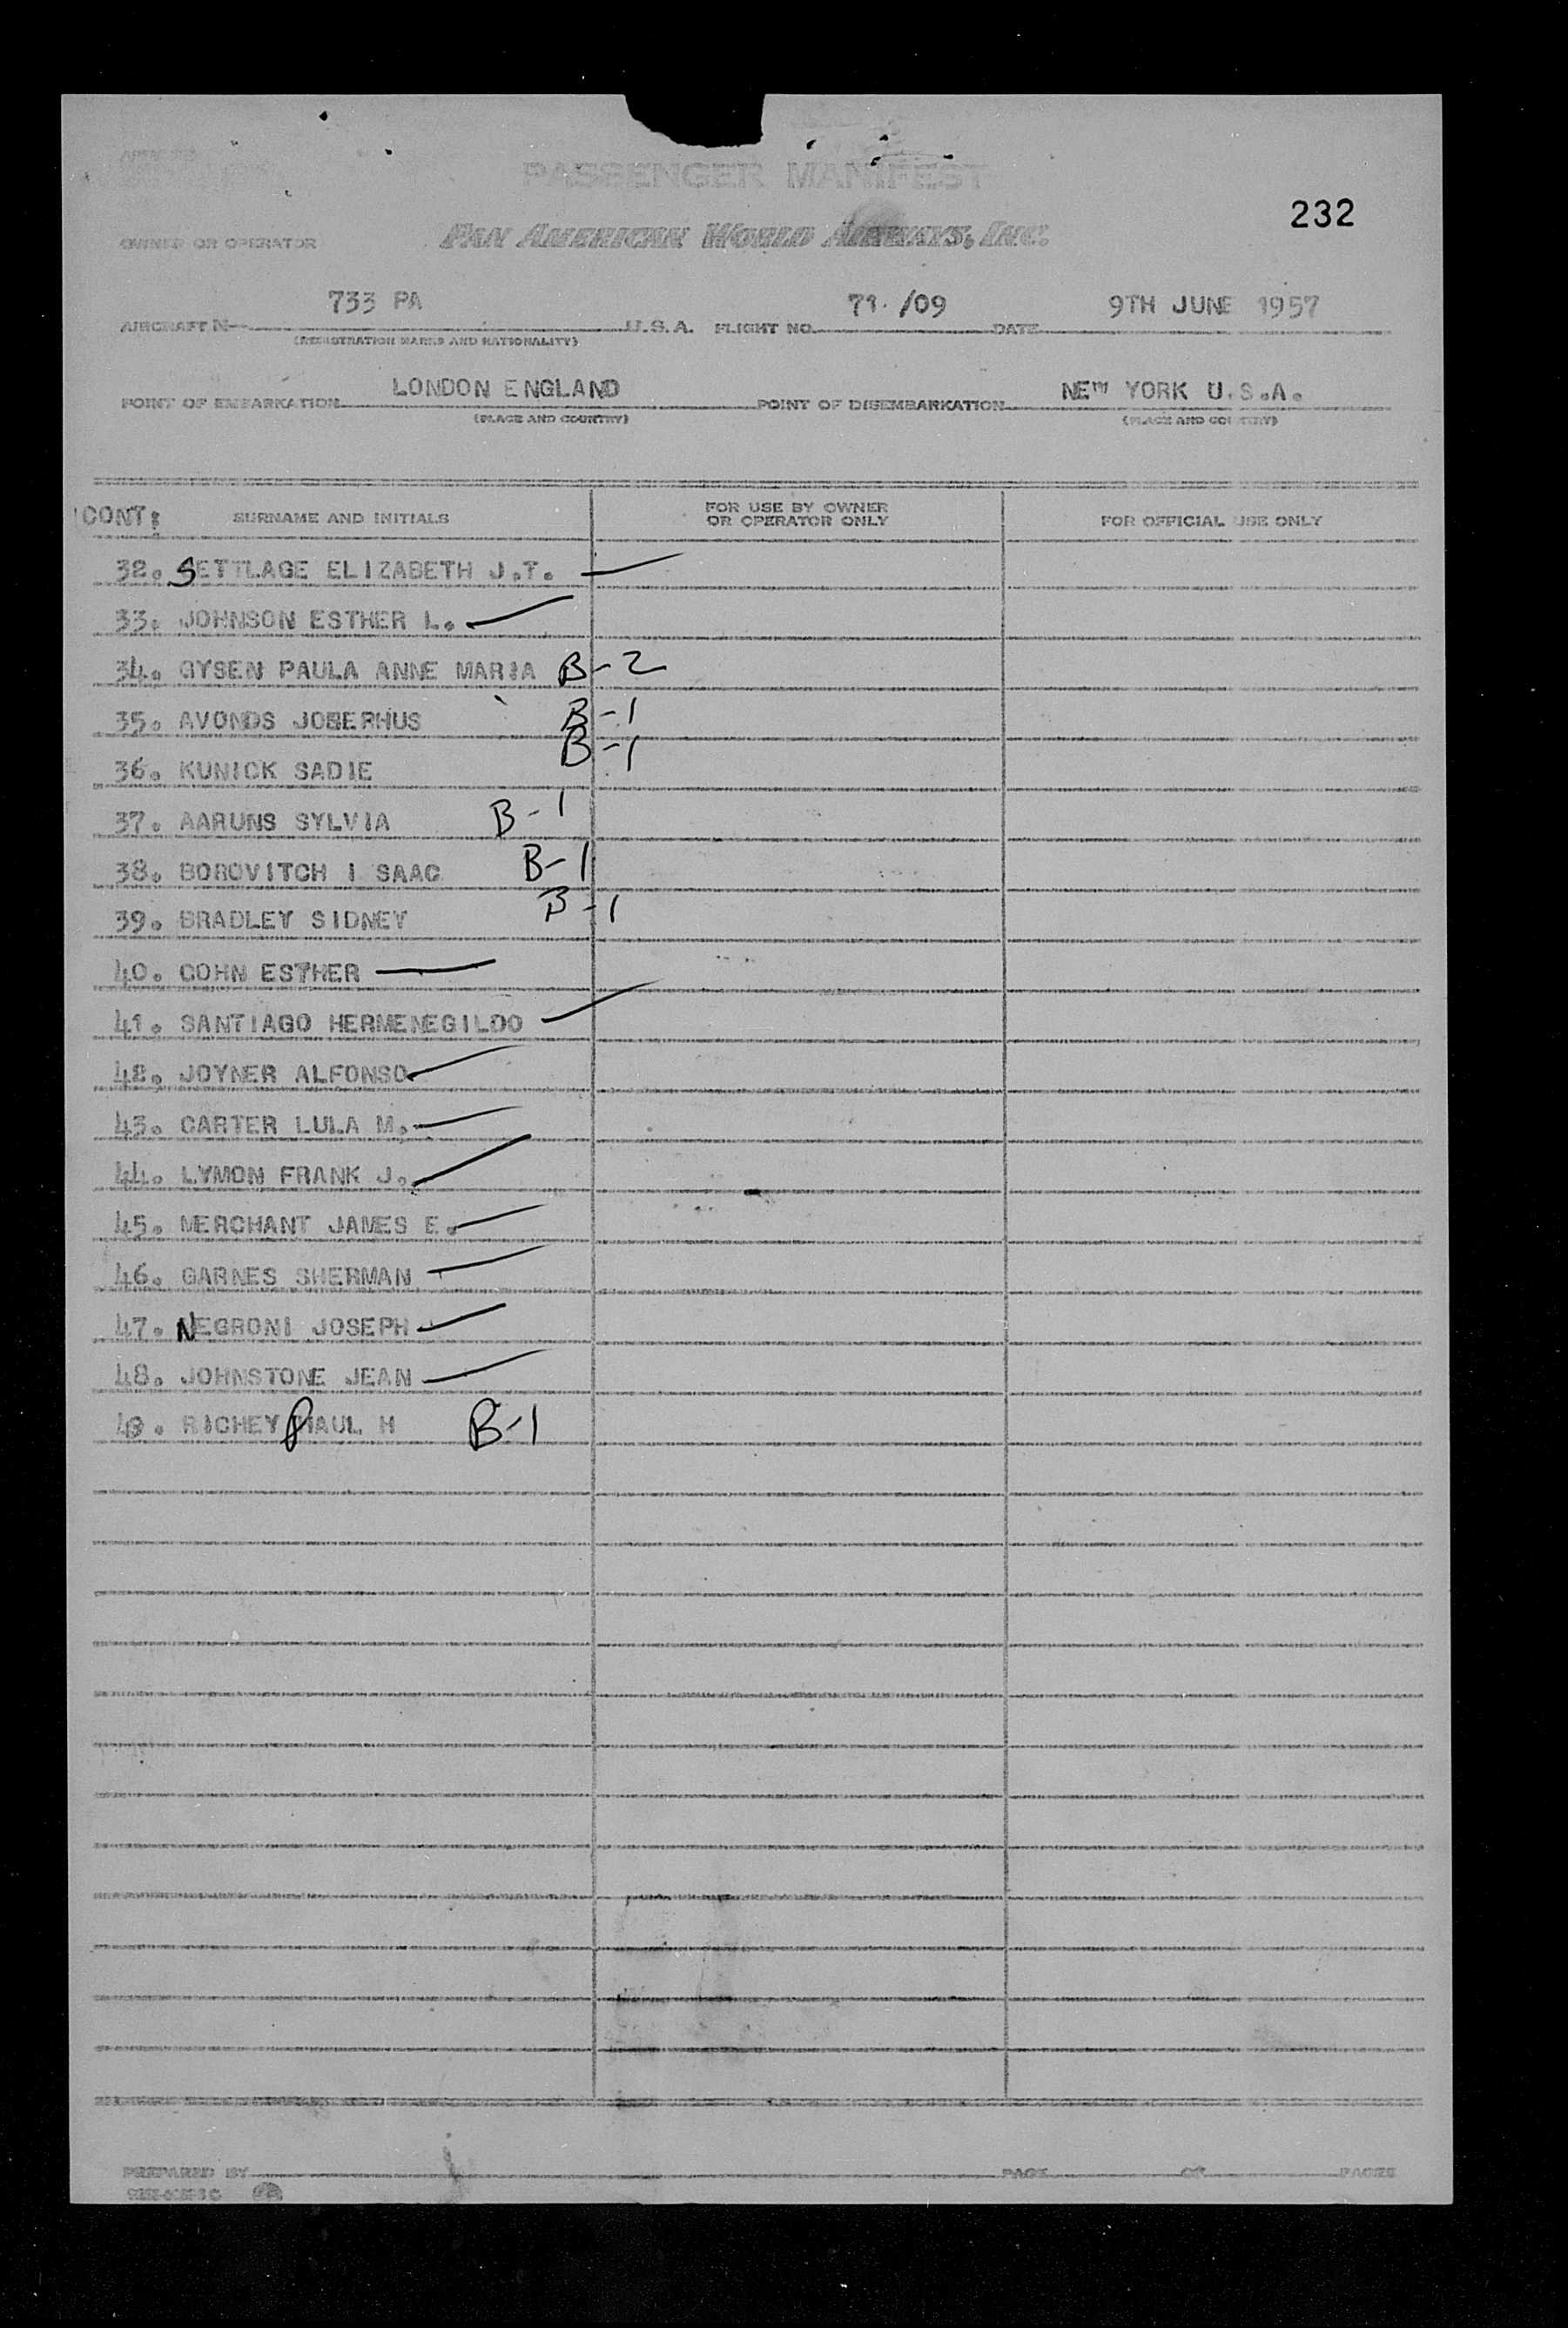 PASSENGER MANIFEST
232
OWNER OR OPERATOR PAN AMERICAN WORLD AIRWAYS, INC.
733 PA 71 /09 9TH JUNE 1957
AIRCRAFT N U.S.A. FLIGHT NO. DATE
(REGISTRATION MARKS AND NATIONALITY)
LONDON ENGLAND NEW YORK U.S.A.
POINT OF EMBARKATION POINT OF DISEMBARKATION
(PLACE AND COUNTRY) (PLACE AND COUNTRY)
CONT: SURNAME AND INITIALS FOR USE BY OWNER OR OPERATOR ONLY FOR OFFICIAL USE ONLY
32. SETTLAGE ELIZABETH J.T.
33. JOHNSON ESTHER L.
34. GYSEN PAULA ANNE MARIA B-2
35. AVONDS JOBERHUS B-1
36. KUNICK SADIE B-1
37. AARUNS SYLVIA B-1
38. BOROVITCH I SAAC B-1
39. BRADLEY SIDNEY B-1
40. COHN ESTHER
41. SANTIAGO HERMENEGILDO
42. JOYNER ALFONSO
43. CARTER LULA M.
44. LYMON FRANK J.
45. MERCHANT JAMES E.
46. GARNES SHERMAN
47. NEGRONI JOSEPH
48. JOHNSTONE JEAN
49. RICHEY PAUL H B-1
PREPARED BY PAGE OF PAGES